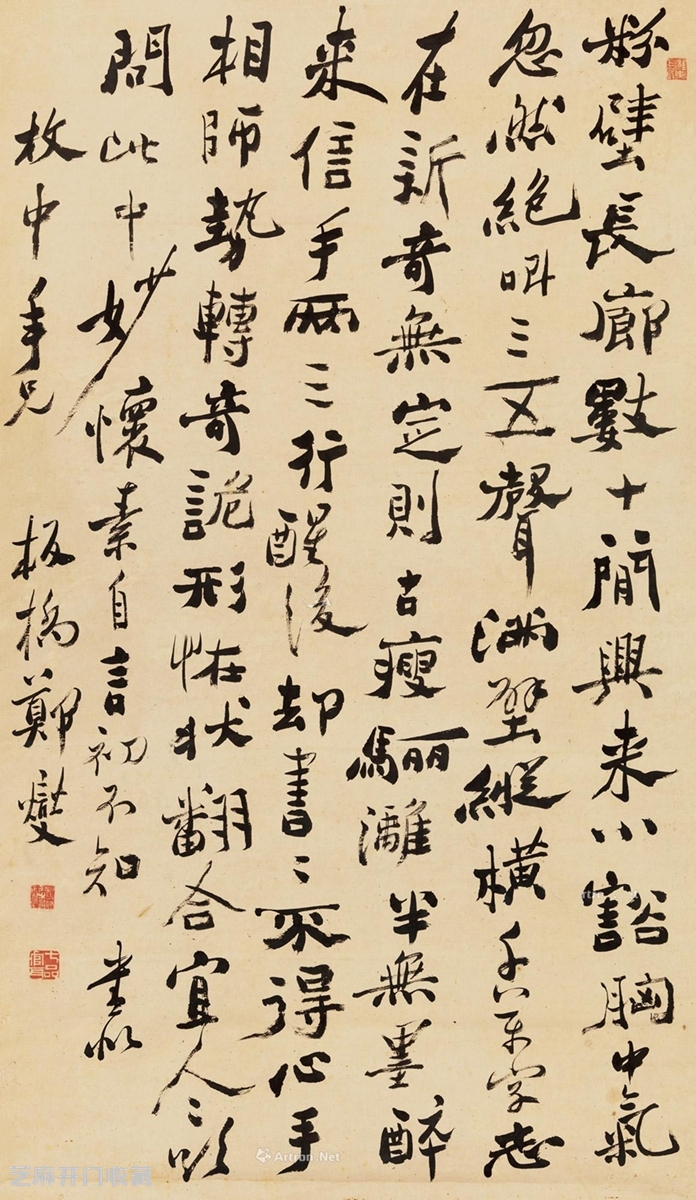 粉壁長廊數十間興来小豁胸中氣
忽然絕叫三五聲滿壁縱橫千万字志
在新奇無定則古瘦驪灕半無墨醉
来信手兩三行醒後却書〻不得心手
相師勢轉奇詭形怪狀翻合宜人〻欲
問此中妙懷素自言初不知 書似
枚中年兄 板橋鄭燮
七品官耳
Artron.Net
芝麻开门